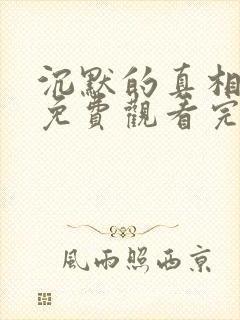 沉默的真相
免費觀看完
風雨照西京